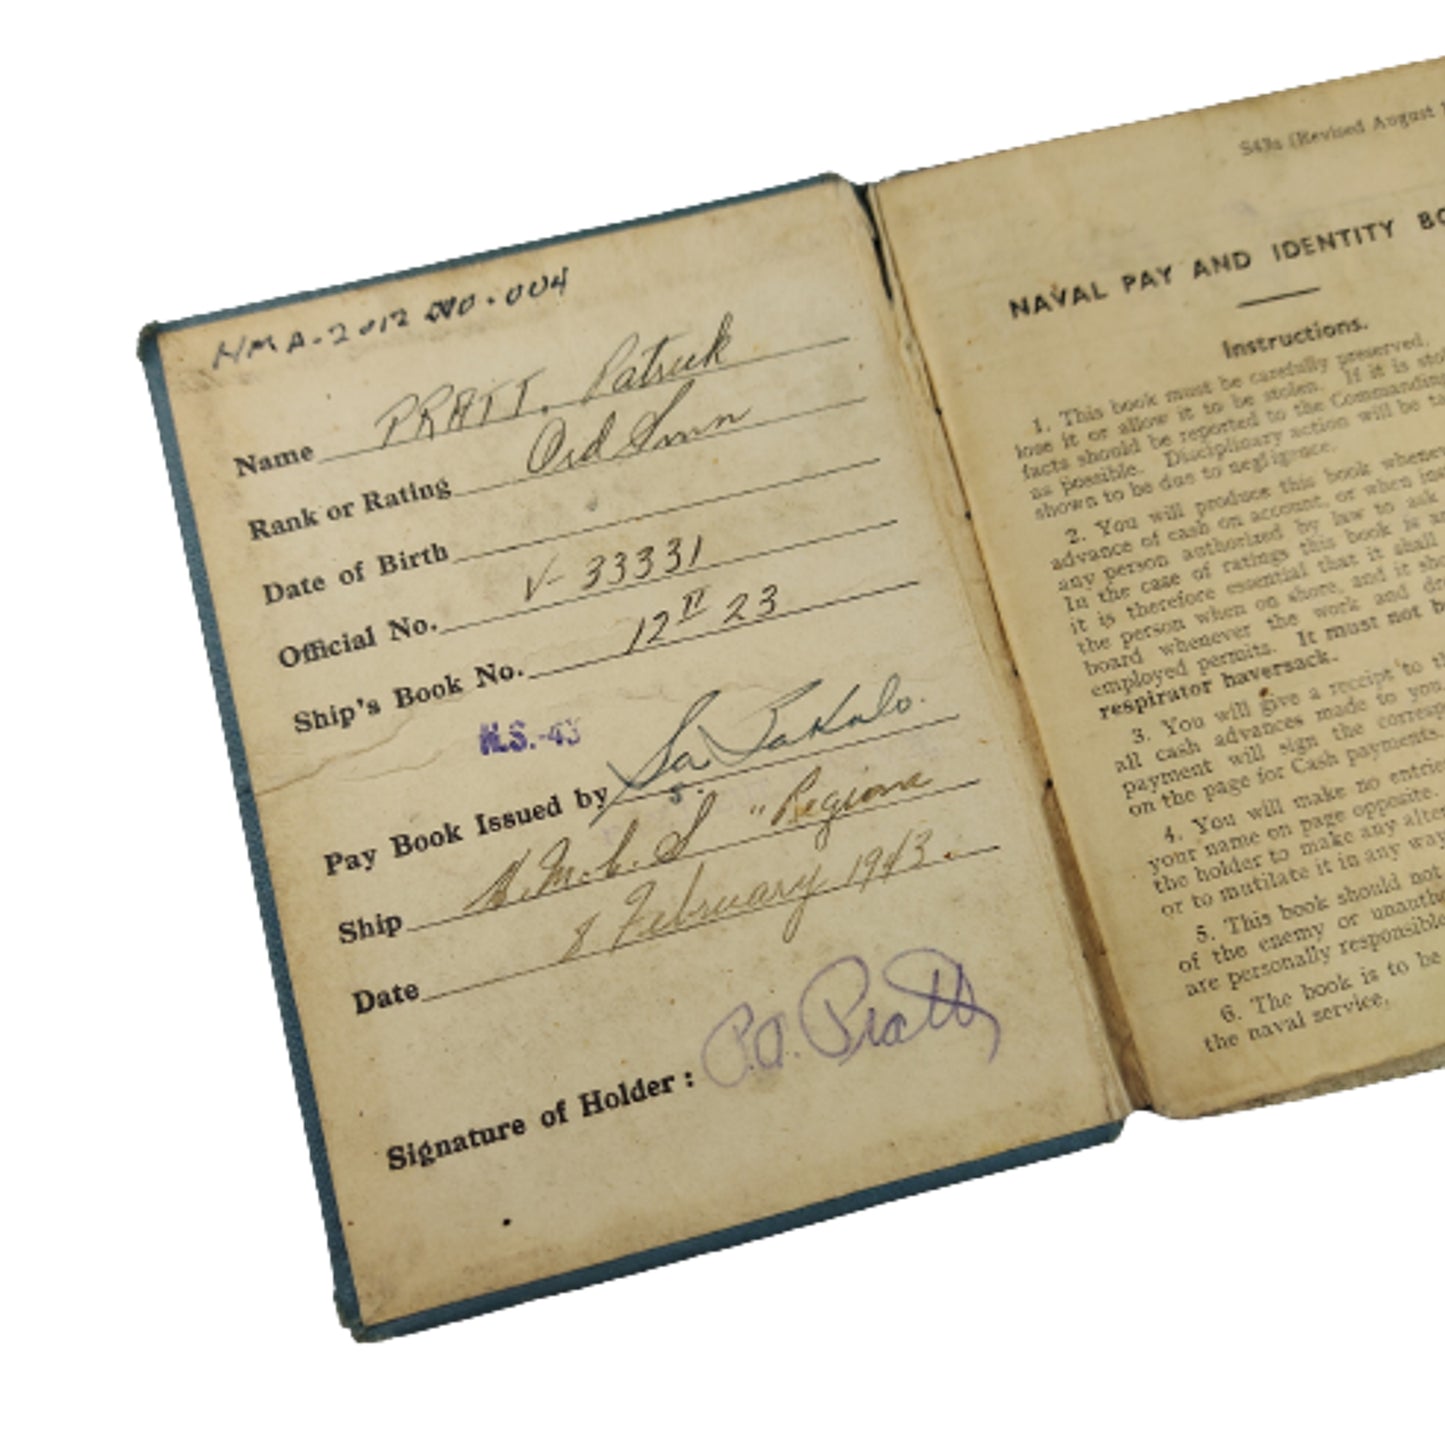 NMA-2012 000.004
Name PRATT, Patrick
Rank or Rating Ord Smn
Date of Birth
Official No. V-33331
Ship's Book No. 12 II 23
N.S.-43
Pay Book Issued by
Ship H.M.C.S "Regina
Date 8 February 1943.
Signature of Holder: P.A. Pratt
S43a (Revised August
NAVAL PAY AND IDENTITY BO
Instructions.
1. This book must be carefully preserved.
lose it or allow it to be stolen. If it is stol
facts should be reported to the Commandin
as possible. Disciplinary action will be ta
shown to be due to negligence.
2. You will produce this book wheneve
advance of cash on account, or when ins
any person authorized by law to ask
In the case of ratings this book is an
it is therefore essential that it shall
the person when on shore, and it sho
board whenever the work and dr
employed permits. It must not b
respirator haversack.
3. You will give a receipt to th
all cash advances made to you
payment will sign the corresp
on the page for Cash payments.
4. You will make no entrie
your name on page opposite.
the holder to make any alter
or to mutilate it in any way
5. This book should not
of the enemy or unautho
are personally responsible
6. The book is to be
the naval service.